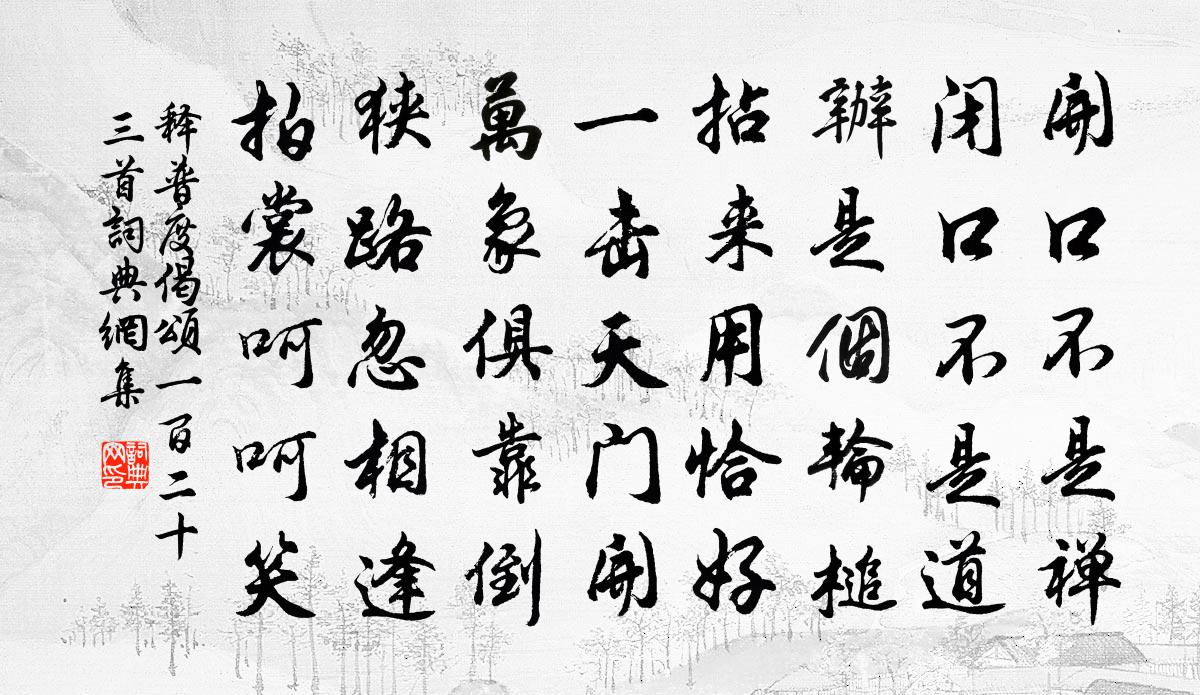 開口不是禅
闭口不是道
辦是個輪槌
拈来用恰好
一击天门開
萬象俱靠倒
狭路忽相逢
拍裳呵呵笑
释普度偈頌一百二十
三首詞典網集
詞典
网印